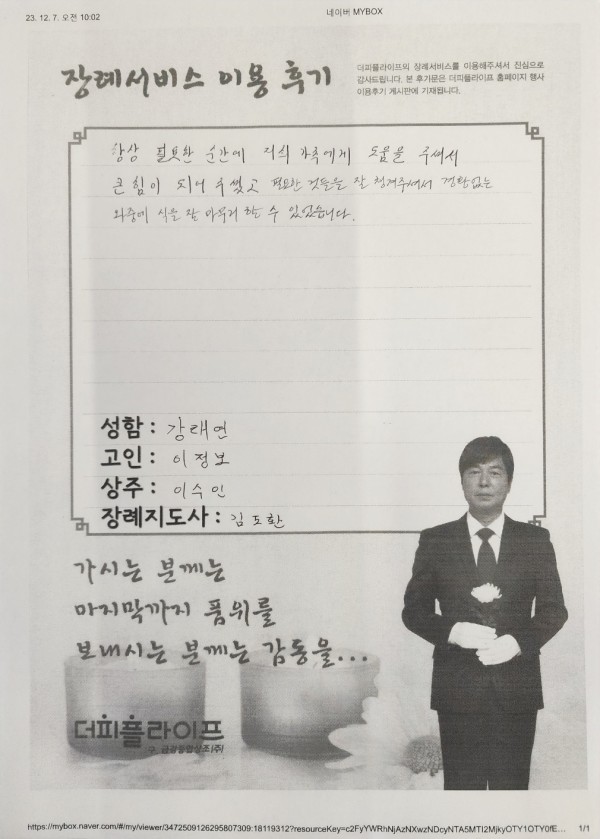 23. 12. 7. 오전 10:02
네이버 MYBOX
장례서비스 이용 후기
더피플라이프의 장례서비스를 이용해주셔서 진심으로
감사드립니다. 본 후기문은 더피플라이프 홈페이지 행사
이용후기 게시판에 기재됩니다.
항상 필요한 순간에 저희 가족에게 도움을 주셔서
큰 힘이 되어 주셨고 필요한 것들을 잘 챙겨주셔서 경황없는
와중에 식을 잘 마무리 할 수 있었습니다.
성함 : 강태연
고인 : 이정보
상주 : 이수인
장례지도사 : 김도환
가시는 분께는
마지막까지 품위를
보내시는 분께는 감동을...
더피플라이프
구. 금강종합상조(주)
1/1